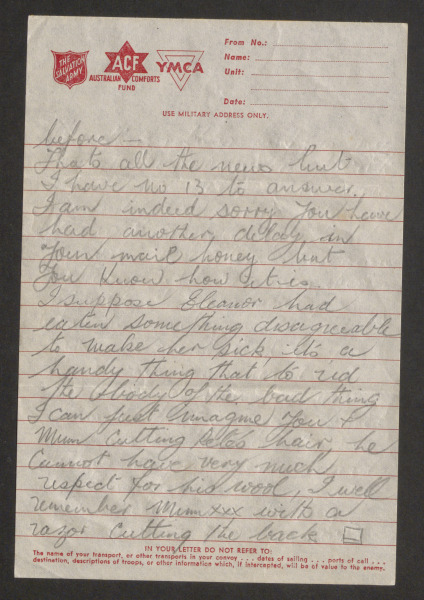 THE
SALVATION
ARMY
ACF
AUSTRALIAN COMFORTS
FUND
YMCA
From No.:
Name:
Unit:
Date:
USE MILITARY ADDRESS ONLY.
before —
Thats all the news but
I have no 13 to answer.
I am indeed sorry you have
had another delay in
Your mail honey but
You know how it is.
I suppose Eleanor had
eaten something disagreeable
to make her sick, its a
handy thing that to rid
the body of the bad thing
I can just imagine You &
Mum cutting hair, he
cannot have very much
respect for his wool, I well
remember Mum xxx with a
razor cutting the back
IN YOUR LETTER DO NOT REFER TO:
The name of your transport, or other transports in your convoy . . . dates of sailing . . . ports of call . . .
destination, descriptions of troops, or other information which, if intercepted, will be of value to the enemy.